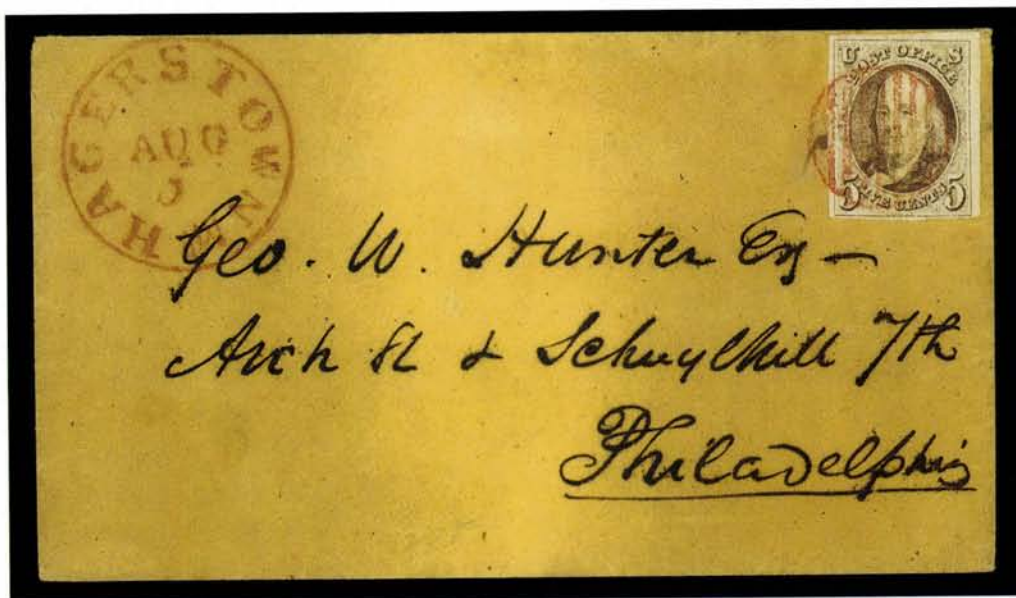 HAGERSTOWN Md
AUG
5
U S
POST OFFICE
FIVE CENTS
5 5
Geo. W. Hunter Esq –
Arch St & Schuylkill 7th
Philadelphia